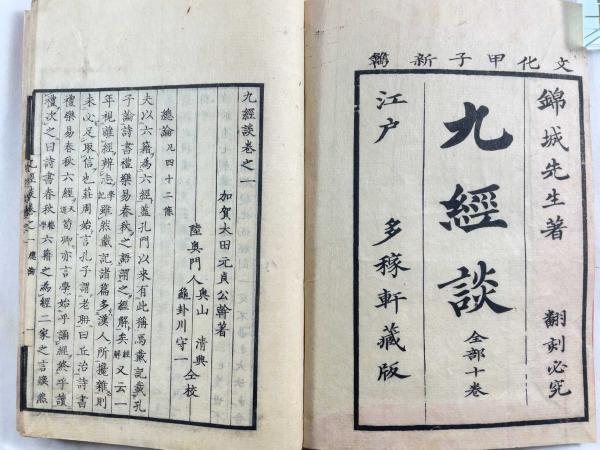 文化甲子新鐫
錦城先生著
翻刻必究
九經談
全部十卷
江戶
多稼軒藏版
九經談卷之一
加賀大田元貞公幹著
陸奧門人
奧山 清興
龜卦川守一
仝校
總論凡四十二條
夫以六籍為六經蓋孔門以來有此稱焉戴記載孔
子論詩書禮樂易春秋之語謂之經解矣
又云一
年視離經辨志
雖然戴記諸篇多漢人所攙雜則
未必足取信也莊周始言孔子謂老聃曰丘治詩書
禮樂易春秋六經
荀卿亦言學始乎誦經終乎讀
禮次之曰詩書春秋
六籍之為經二家之言燦然
九經談卷之一
總論
一